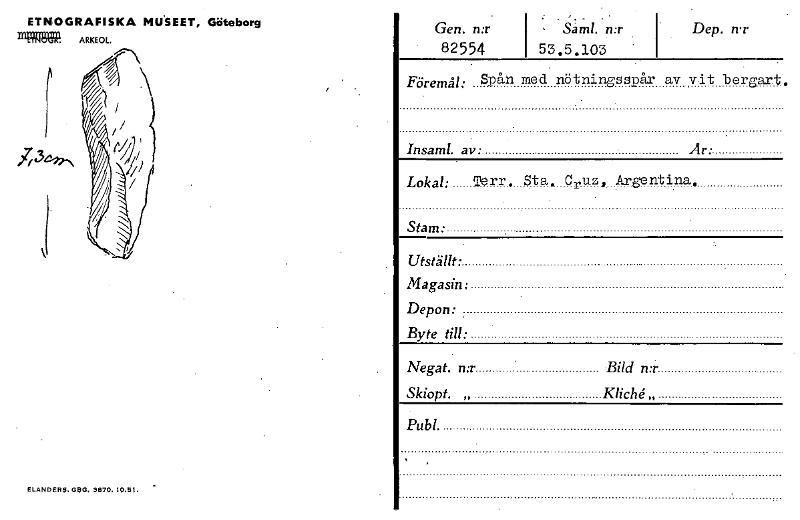 ETNOGRAFISKA MUSEET, Göteborg
ETNOGR. ARKEOL.
7,3cm
ELANDERS. GBG. 3870. 10.51.
Gen. n:r Saml. n:r Dep. n:r
82554 53.5.103
Föremål: Spån med nötningsspår av vit bergart.
Insaml. av: År:
Lokal: Terr. Sta. Cruz, Argentina.
Stam:
Utställt:
Magasin:
Depon:
Byte till:
Negat. n:r Bild n:r
Skiopt. „ Kliché „
Publ.